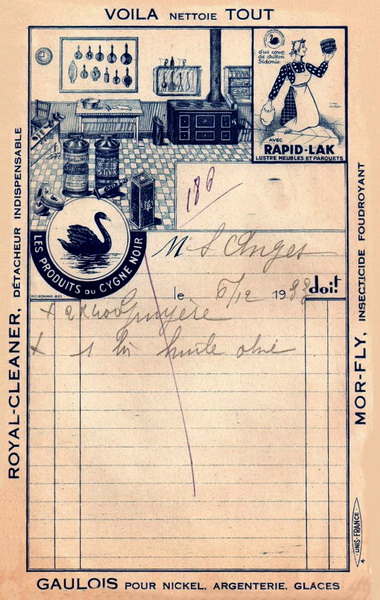 VOILA NETTOIE TOUT
d'un coup
de chiffon
Sidonie
AVEC
RAPID-LAK
LUSTRE MEUBLES ET PARQUETS
186
LES PRODUITS DU CYGNE NOIR
M S. Anges
le 6/12 193 doit
+ 2K400 Gruyère
+ 1 lit huile olive
ROYAL-CLEANER, DÉTACHEUR INDISPENSABLE
MOR-FLY, INSECTICIDE FOUDROYANT
UNIS-FRANCE
GAULOIS POUR NICKEL, ARGENTERIE, GLACES